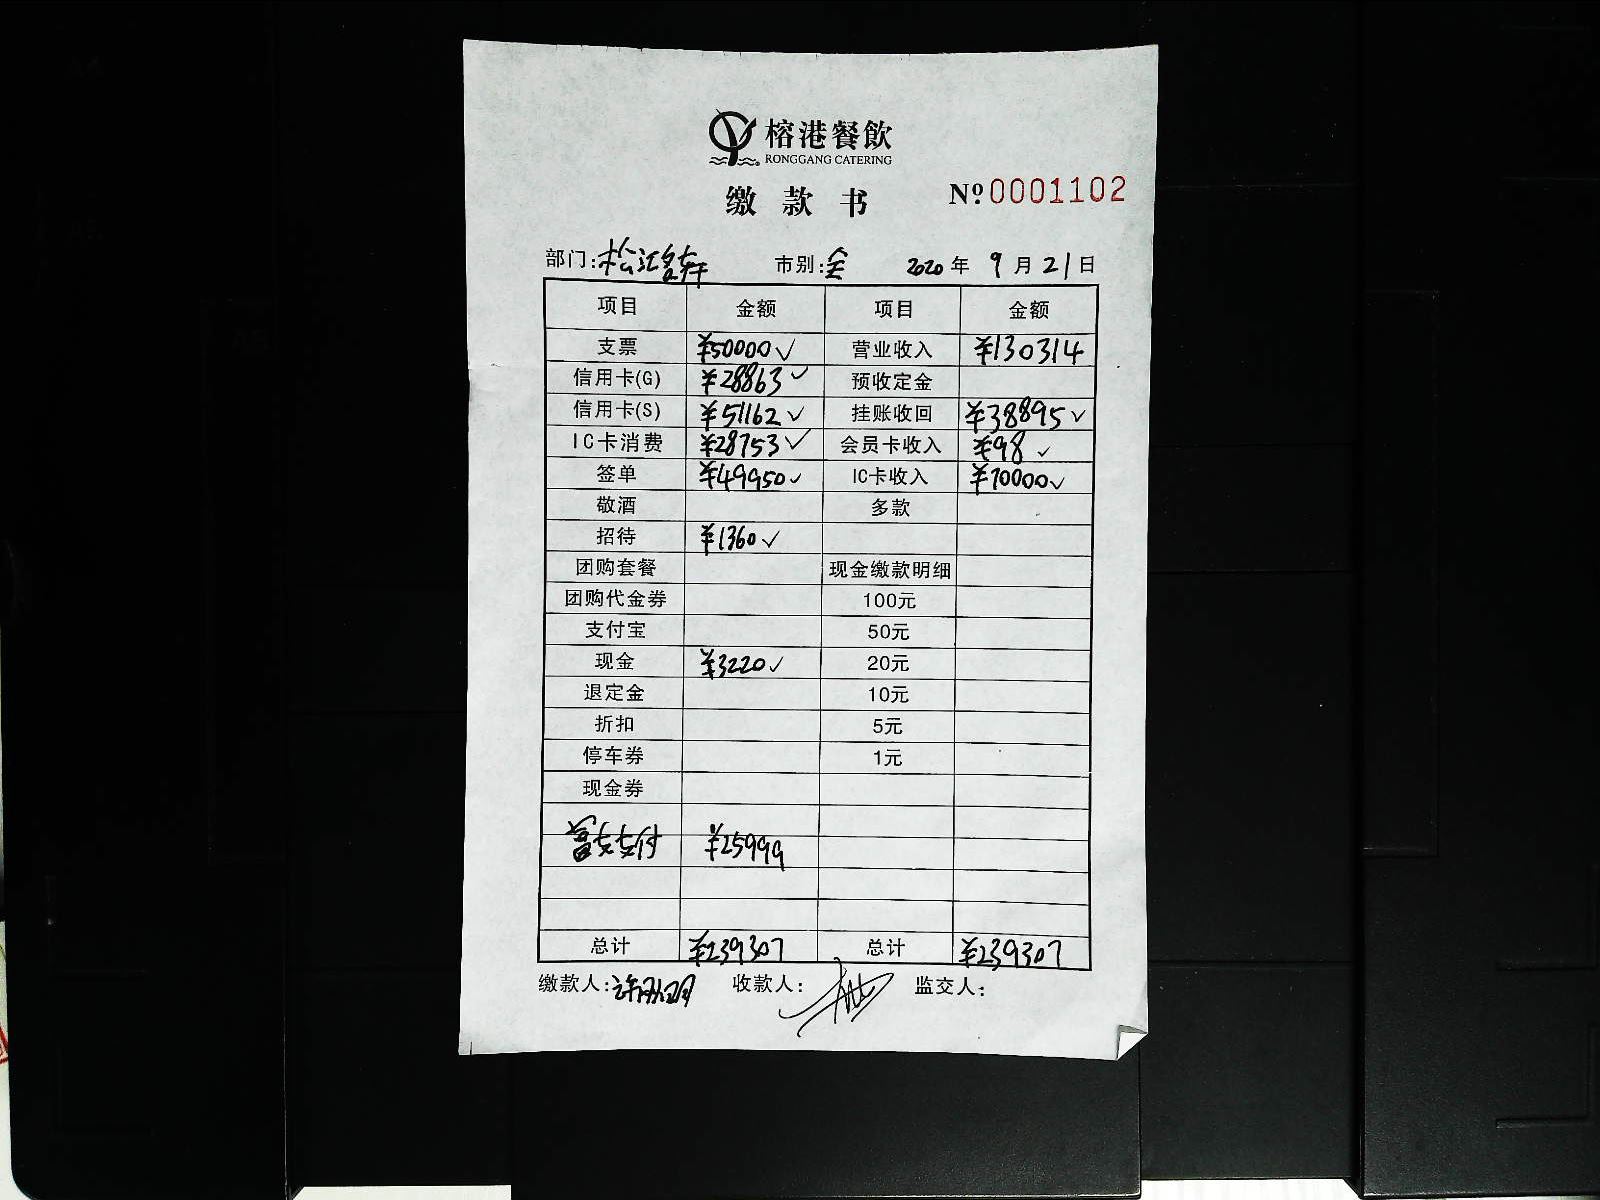 榕港餐飲
RONGGANG CATERING
缴款书 Nº 0001102
部门:松江 市别:全 2020年9月21日
项目 金额 项目 金额
支票 ¥50000✓ 营业收入 ¥130314
信用卡(G) ¥28863✓ 预收定金
信用卡(S) ¥51162✓ 挂账收回 ¥38895✓
IC卡消费 ¥28753✓ 会员卡收入 ¥98✓
签单 ¥49950✓ IC卡收入 ¥70000✓
敬酒 多款
招待 ¥1360✓
团购套餐 现金缴款明细
团购代金券 100元
支付宝 50元
现金 ¥3220✓ 20元
退定金 10元
折扣 5元
停车券 1元
现金券
富友支付 ¥25999
总计 ¥239307 总计 ¥239307
缴款人: 收款人: 监交人: